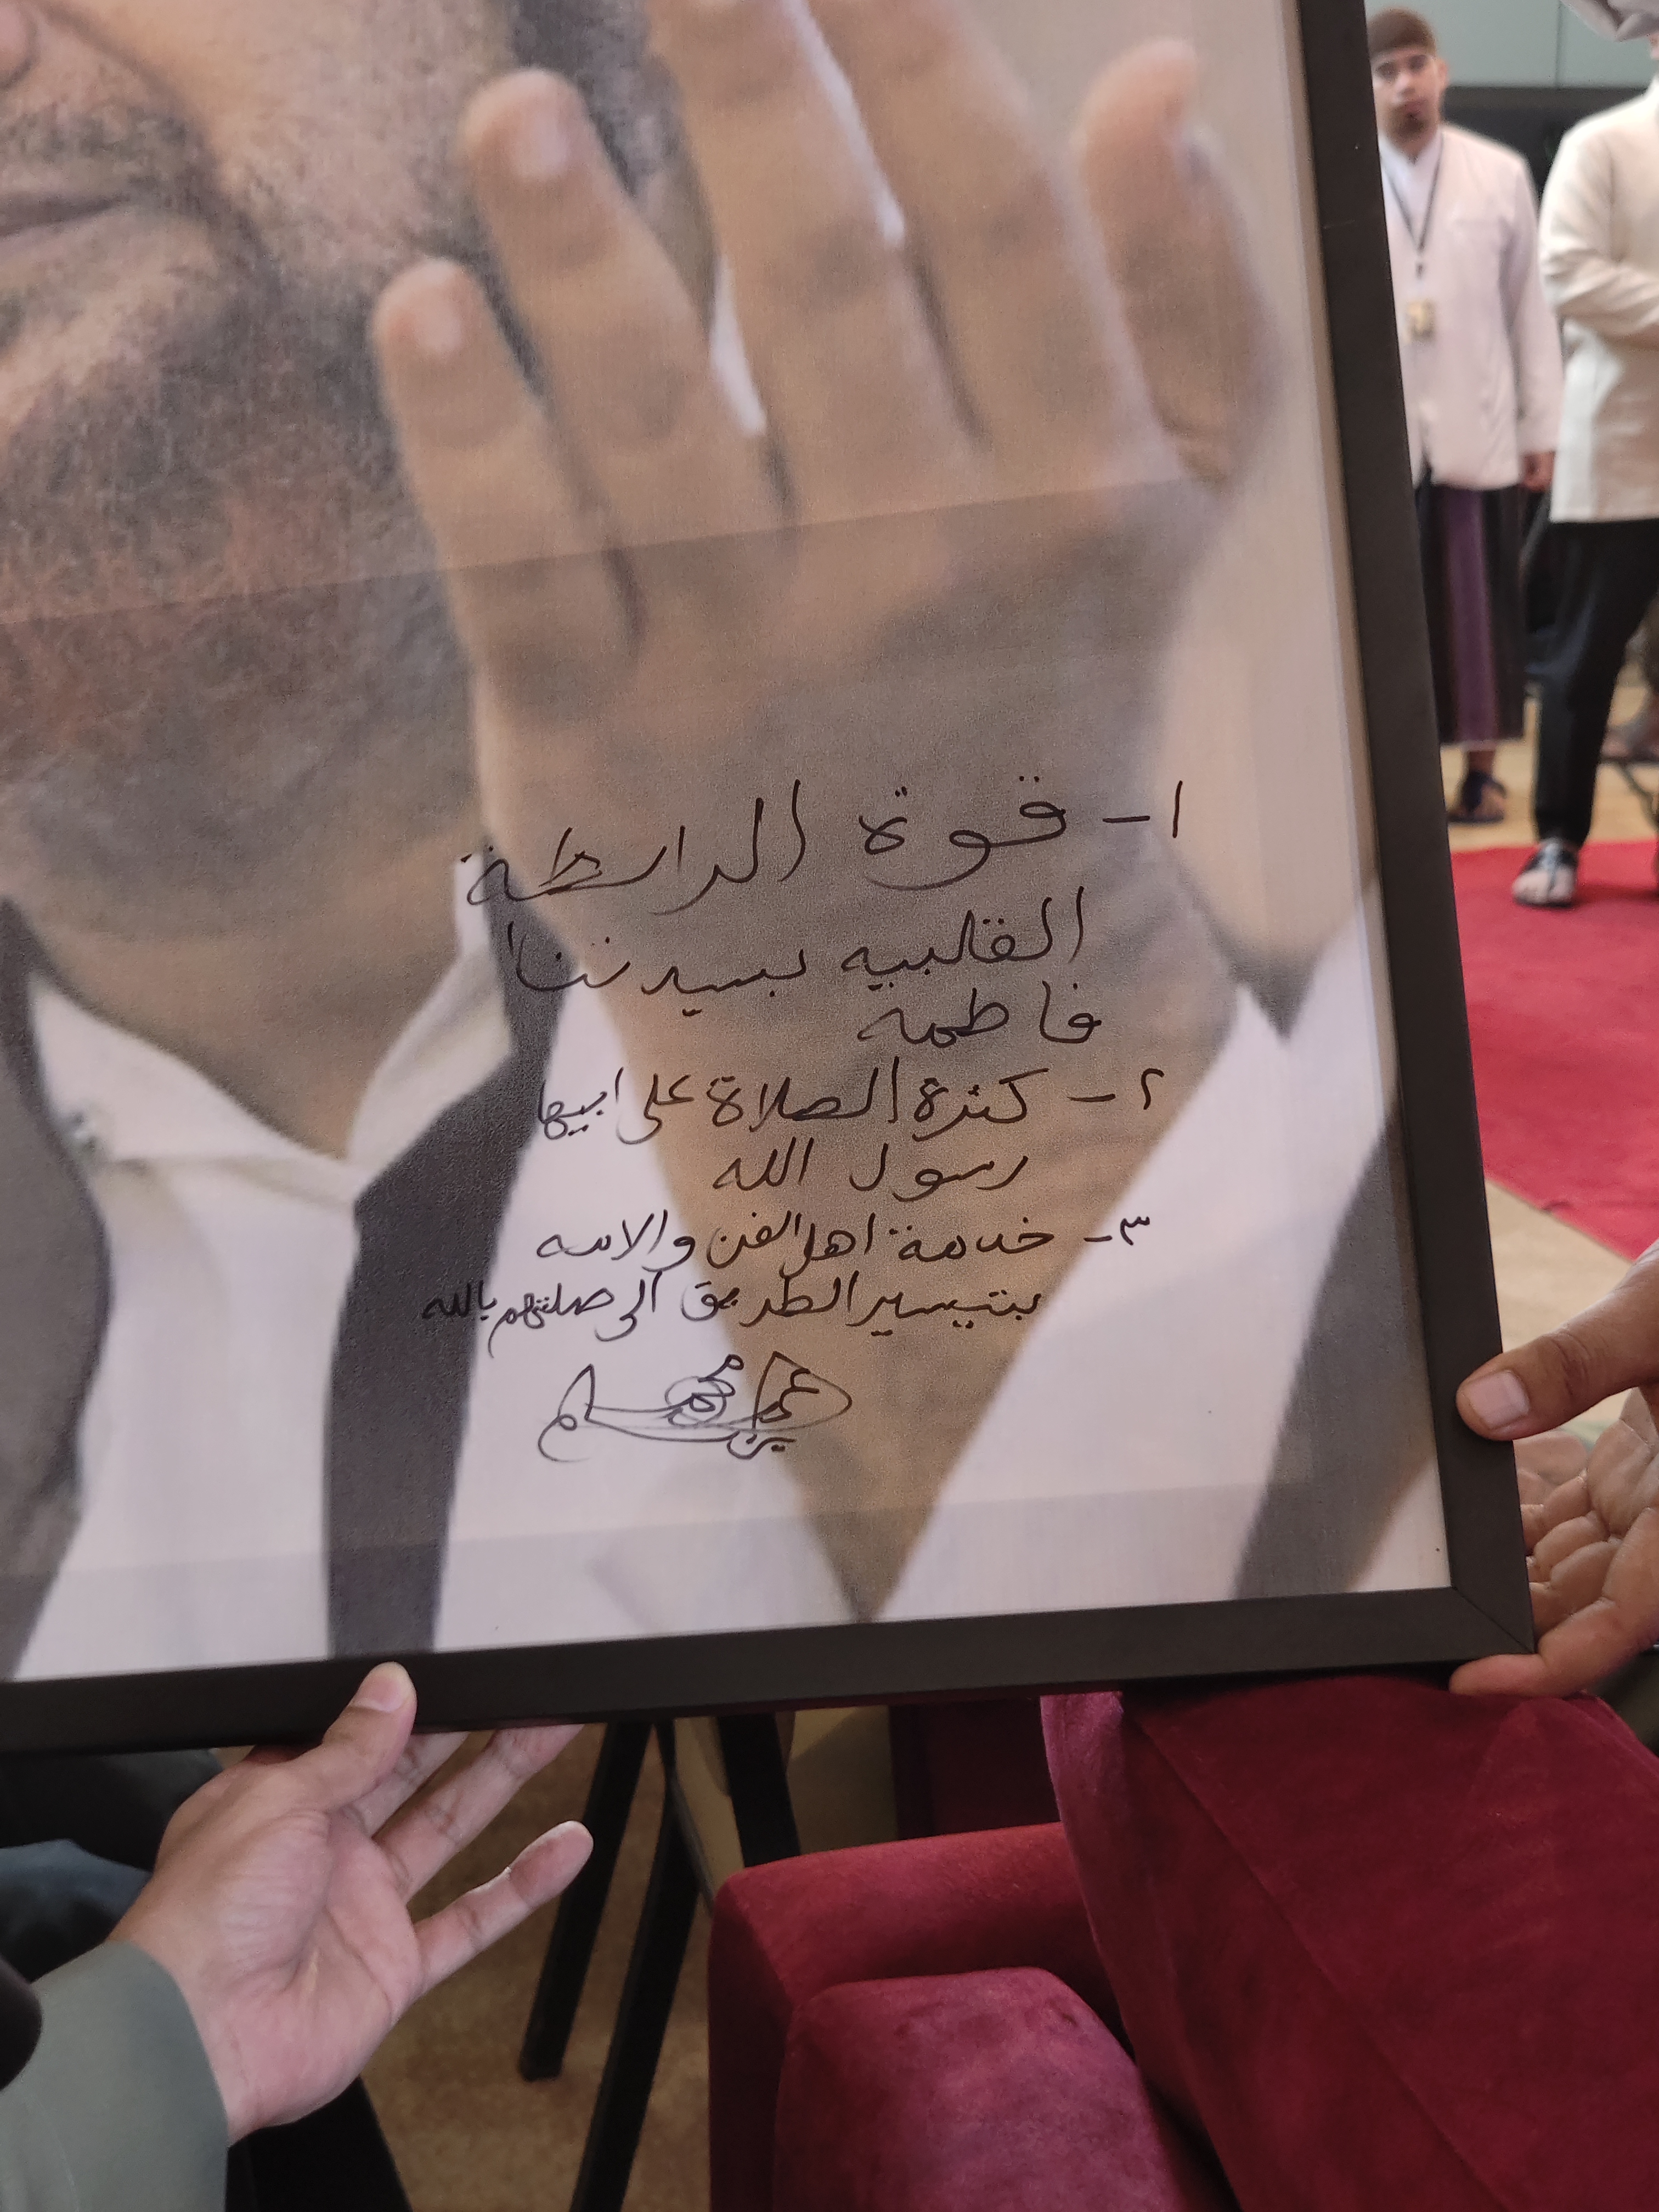 ١- قوة الرابطة
القلبيه بسيدتنا
فاطمه
٢- كثرة الصلاة على ابيها
رسول الله
٣- خدمة اهل الفن والامه
بتيسير الطريق الى صلتهم بالله
عمر محمد
بن سالم